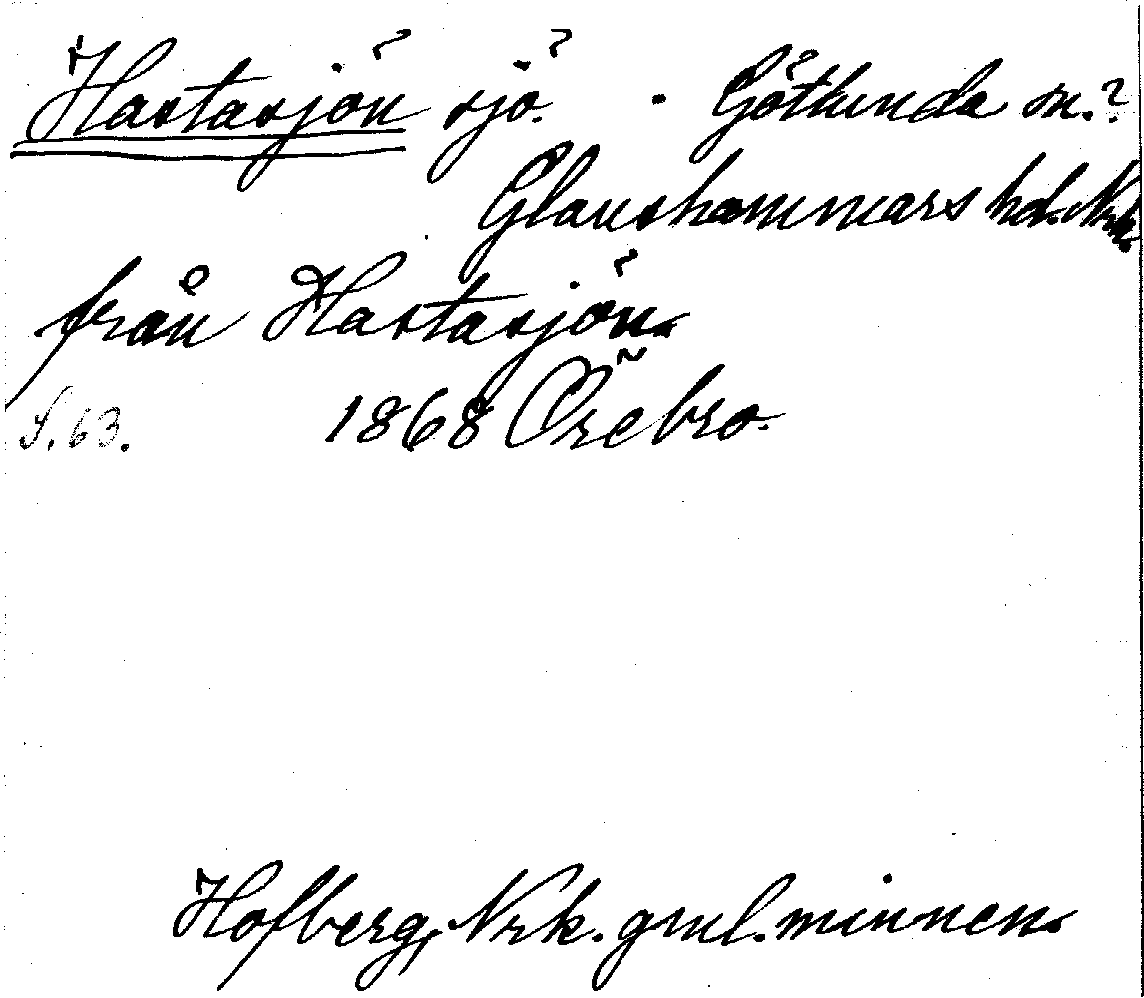 Hastasjön sjö. Götlunda sn.?
Glanshammars hd. Nrk.
från Hastasjön.
S. 63. 1868 Örebro.
Hofberg, Nrk. gml. minnen.